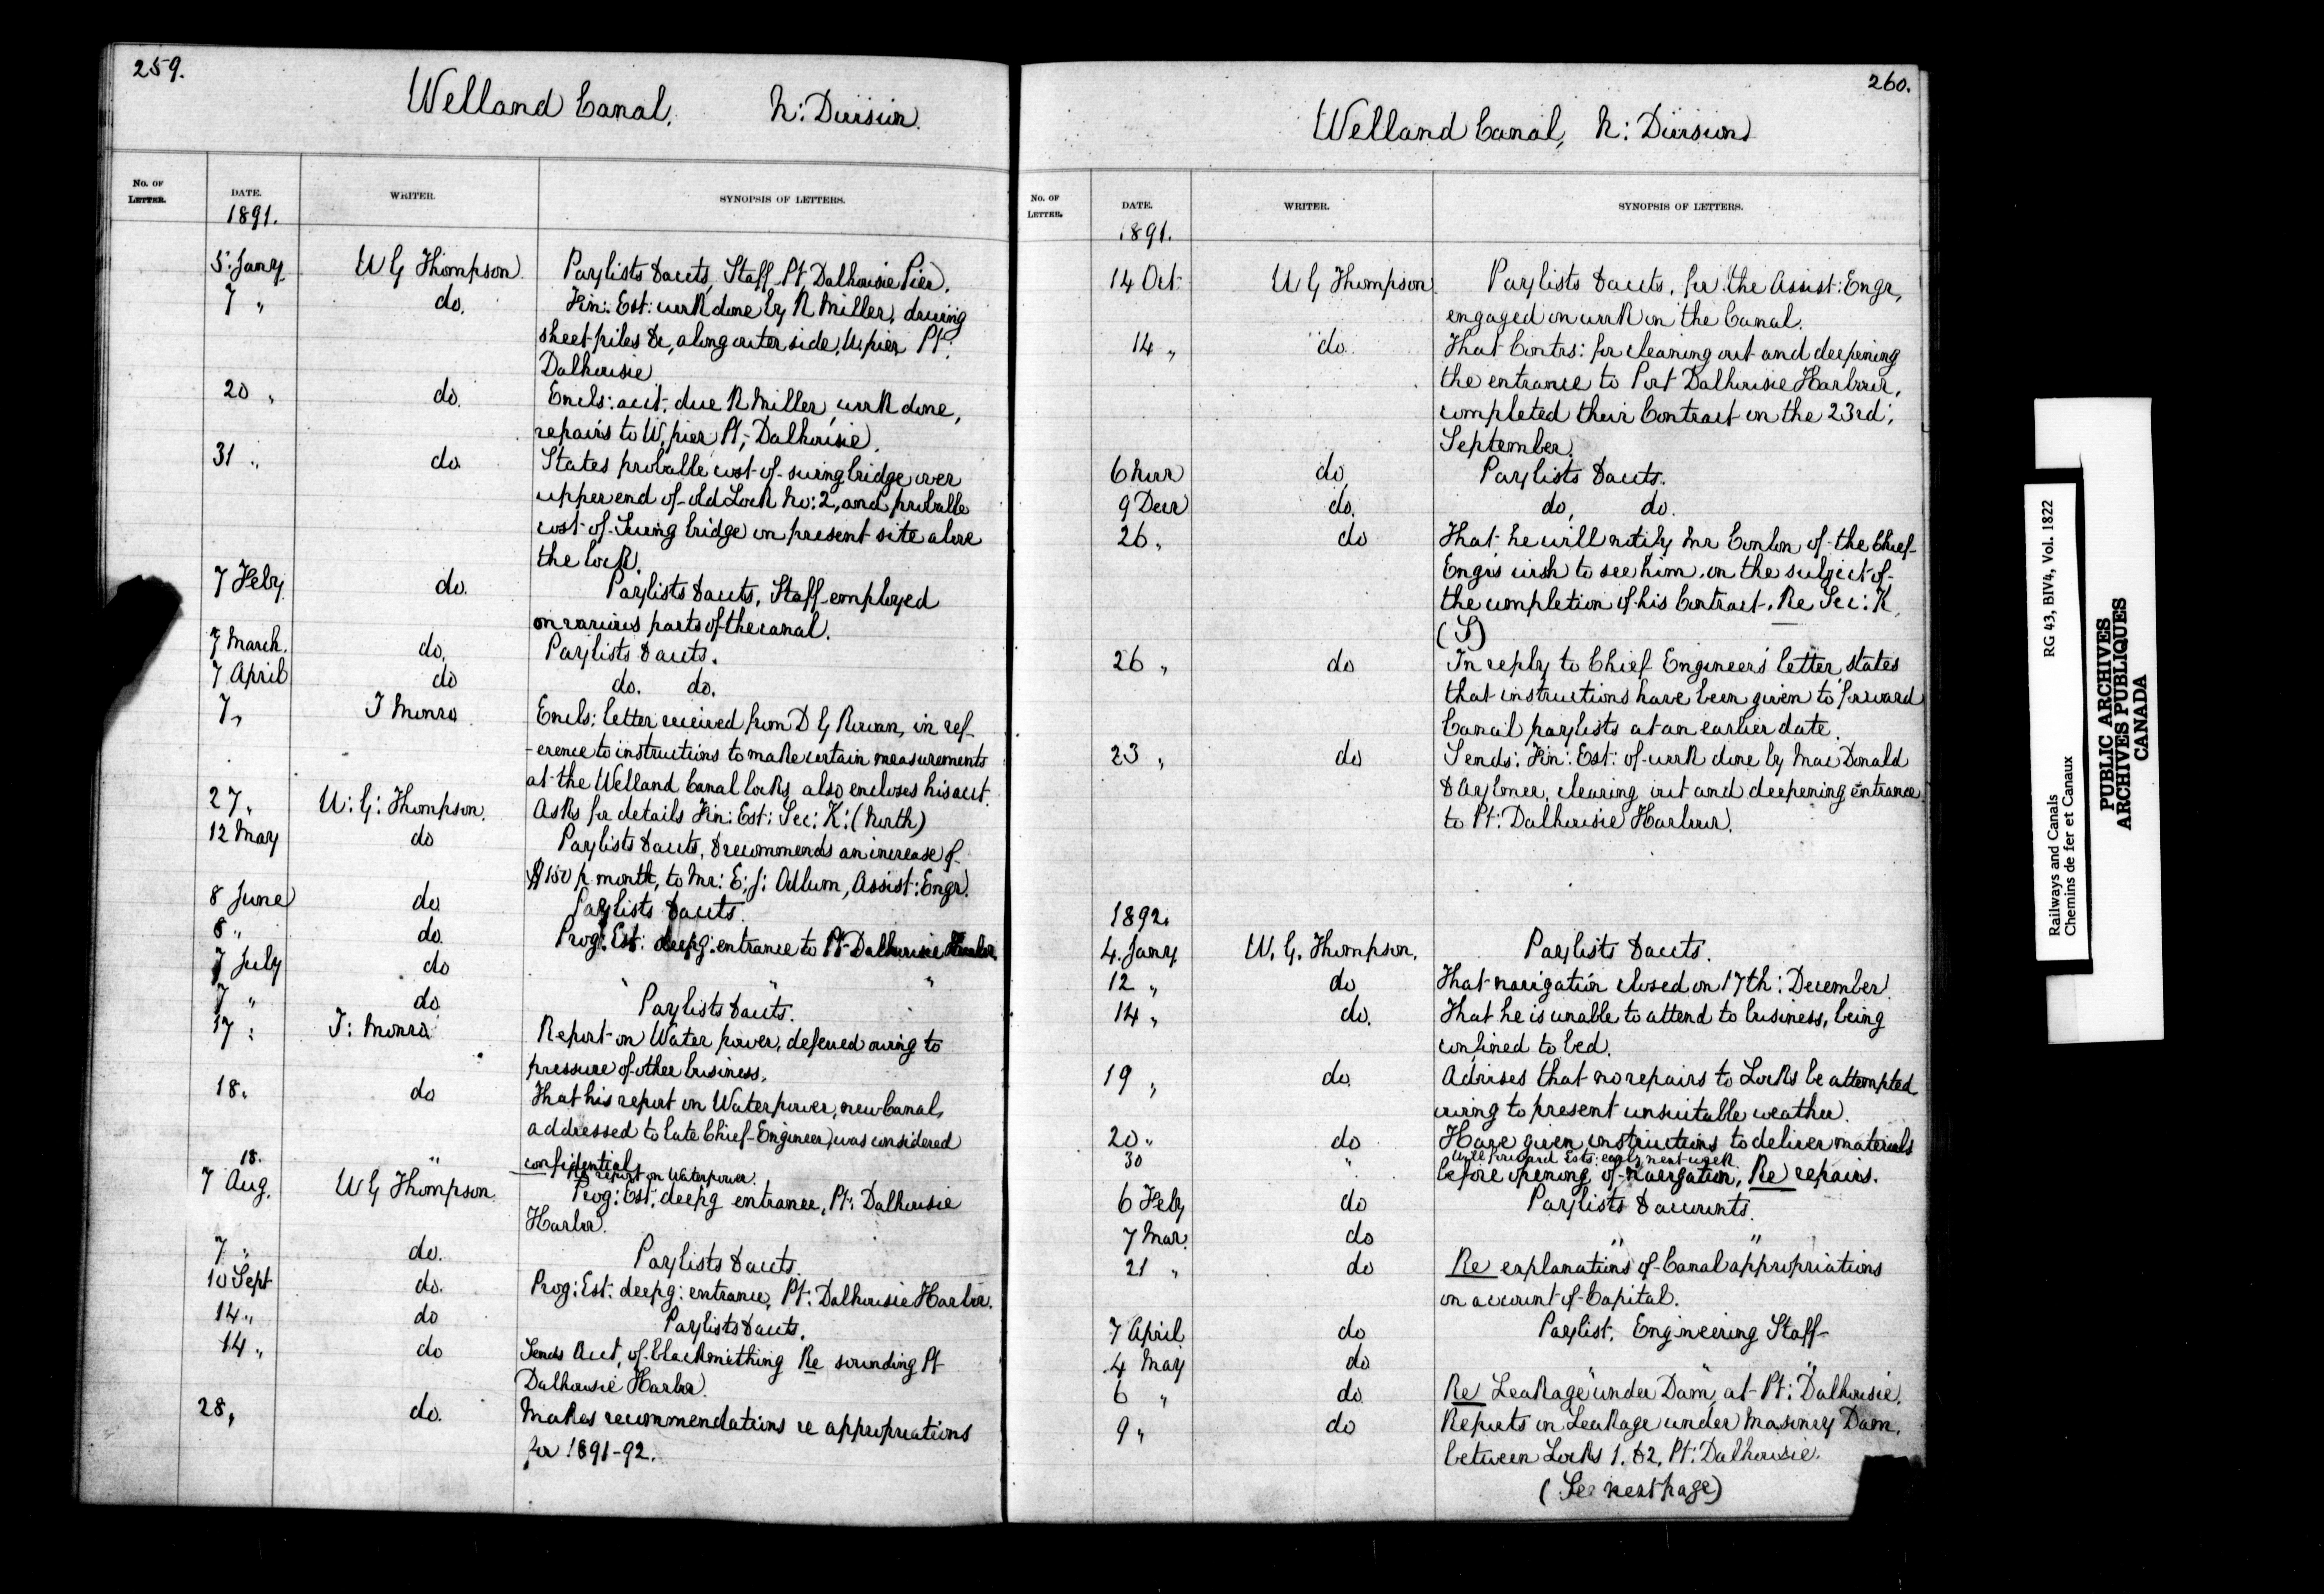 259.
Welland Canal, N: Division.
No. OF LETTER. DATE. WRITER. SYNOPSIS OF LETTERS.
1891.
5: Jany W G Thompson Paylists & accts, Staff Pt. Dalhousie Pier.
7 " do. Fin: Est: work done by R Miller, driving
sheet-piles &c, along outer side, W. pier Pt:
Dalhousie
20 " do. Encls: acct. due R Miller, work done,
repairs to W. pier Pt:- Dalhousie.
31 " do. States probable cost of swing bridge over
upper end of old Lock No: 2, and probable
cost of Swing bridge on present site above
the lock.
7 Feby do. Paylists & accts, Staff employed
on various parts of the canal.
7 March. do. Paylists & accts.
7 April do do. do.
7 " T Monro Encls: letter received from D G Rowan, in ref-
-erence to instructions to make certain measurements
at the Welland Canal locks, also encloses his acct.
27 " W: G: Thompson. Asks for details Fin: Est: Sec: K: (North)
12 May do Paylists & accts, & recommends an increase of
$150 p. month, to Mr: E: J: Odlum, Assist: Engr.
8 June do. Paylists & accts.
8 " do. Prog: Est: deepg: entrance to Pt- Dalhousie Harbor.
7 July do " " "
7 " do. Paylists & accts.
17 : T: Monro Report on Water power, deferred owing to
pressure of other business.
18. do That his report on Water power, new Canal,
addressed to late Chief Engineer, was considered
confidential,
18. " Re report on Waterpower.
7 Aug. W G Thompson Prog: Est: deepg entrance, Pt: Dalhousie
Harbor.
7 " do. Paylists & accts.
10 Sept do. Prog: Est: deepg: entrance, Pt: Dalhousie Harbor.
14 " do Paylists & accts.
14 " do Sends Acct, of blacksmithing Re sounding Pt-
Dalhousie Harbor.
28 " do. Makes recommendations re appropriations
for 1891-92.
260.
Welland Canal, N: Division
No. OF LETTER. DATE. WRITER. SYNOPSIS OF LETTERS.
1891.
14 Oct W G Thompson Paylists & accts, for the Assist: Engr,
engaged on work on the Canal.
14 " do. That Contrs: for cleaning out and deepening
the entrance to Port Dalhousie Harbour,
completed their Contract on the 23rd:
September.
6 Novr do, Paylists & accts.
9 Decr do. do, do.
26 " do That he will notify Mr Conlon of the Chief
Engrs wish to see him, on the subject of
the completion of his Contract. Re Sec: K,
(S)
26 " do In reply to Chief Engineer's letter, states
that instructions have been given to forward
Canal paylists at an earlier date.
23 " do Sends: Fin: Est: of work done by MacDonald
& Aylmer, clearing out and deepening entrance
to Pt: Dalhousie Harbour.
1892.
4. Jany W. G. Thompson. Paylists & accts.
12 " do That navigation closed on 17th: December.
14 " do. That he is unable to attend to business, being
confined to bed.
19 " do. Advises that no repairs to Locks be attempted
owing to present unsuitable weather.
20 " do Have given instructions to deliver materials
30 " Will forward Ests: early next week
before opening of navigation, Re repairs.
6 Feby do Paylists & accounts.
7 Mar. do " "
21 " do Re explanations of Canal appropriations
on account of Capital.
7 April do Paylist, Engineering Staff-
4 May do " " "
6 " do. Re Leakage under Dam, at Pt: Dalhousie.
9 " do Reports on Leakage under Masonry Dam,
between Locks 1. & 2, Pt: Dalhousie.
(See next page)
Railways and Canals RG 43, BIV4, Vol. 1822
Chemins de fer et Canaux
PUBLIC ARCHIVES
ARCHIVES PUBLIQUES
CANADA